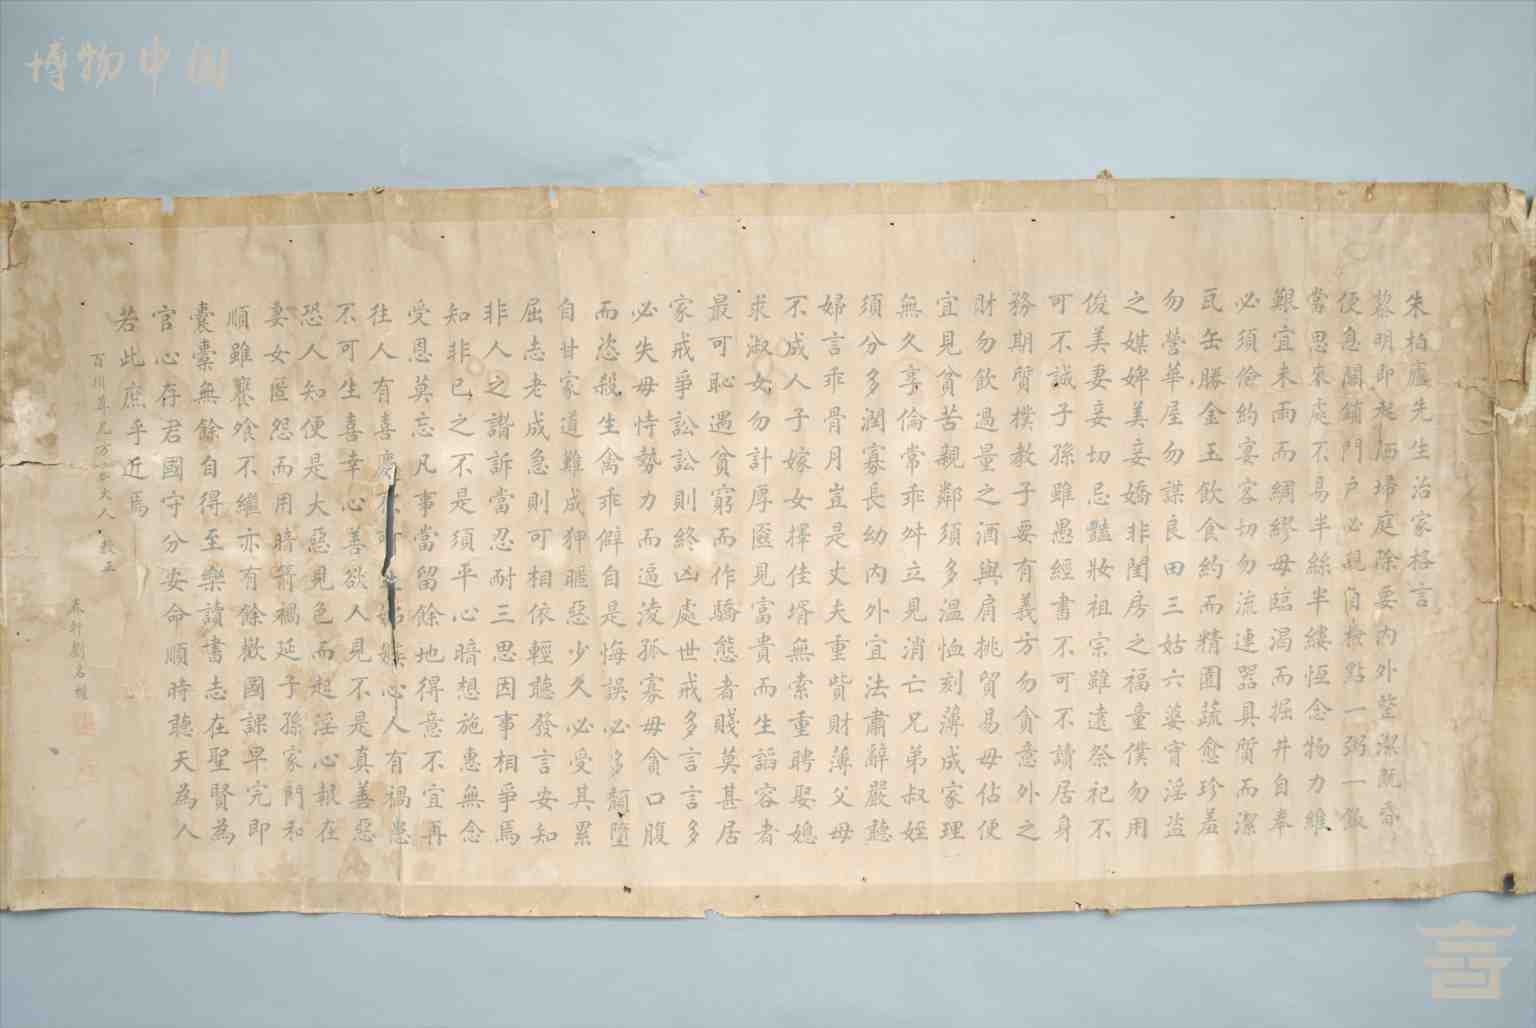 博物中国
朱柏廬先生治家格言
黎明即起洒埽庭除要內外整潔既昏
便息關鎖門户必親自檢點一粥一飯
當思來處不易半絲半縷恆念物力維
艱宜未雨而綢繆毋臨渴而掘井自奉
必須儉約宴客切勿流連器具質而潔
瓦缶勝金玉飲食約而精園蔬愈珍羞
勿營華屋勿謀良田三姑六婆實淫盜
之媒婢美妾嬌非閨房之福童僕勿用
俊美妻妾切忌豔妝祖宗雖遠祭祀不
可不誠子孫雖愚經書不可不讀居身
務期質樸教子要有義方勿貪意外之
財勿飲過量之酒與肩挑貿易毋佔便
宜見貧苦親鄰須多溫恤刻薄成家理
無久享倫常乖舛立見消亡兄弟叔姪
須分多潤寡長幼內外宜法肅辭嚴聽
婦言乖骨月豈是丈夫重貲財薄父母
不成人子嫁女擇佳壻無索重聘娶媳
求淑女勿計厚匳見富貴而生諂容者
最可恥遇貧窮而作驕態者賤莫甚居
家戒爭訟訟則終凶處世戒多言言多
必失毋恃勢力而逼淩孤寡毋貪口腹
而恣殺生禽乖僻自是悔誤必多頹墮
自甘家道難成狎暱惡少久必受其累
屈志老成急則可相依輕聽發言安知
非人之譖訴當忍耐三思因事相爭焉
知非己之不是須平心暗想施惠無念
受恩莫忘凡事當留餘地得意不宜再
往人有喜慶不可生妬嫉心人有禍患
不可生喜幸心善欲人見不是真善惡
恐人知便是大惡見色而起淫心報在
妻女匿怨而用暗箭禍延子孫家門和
順雖饔飧不繼亦有餘歡國課早完即
囊橐無餘自得至樂讀書志在聖賢為
官心存君國守分安命順時聽天為人
若此庶乎近焉
百川尊兄方家大人教正
春軒劉名權